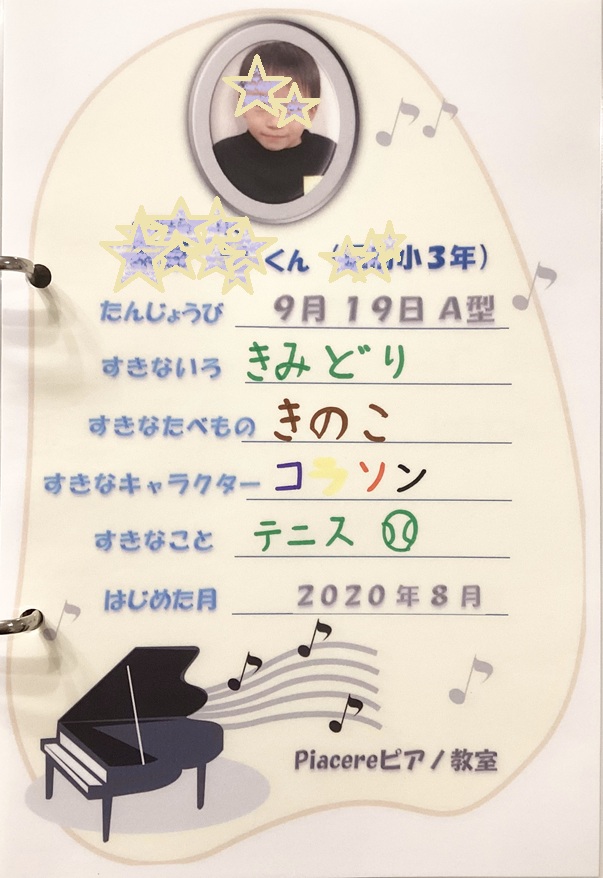 くん（小3年）
たんじょうび 9月19日 A型
すきないろ きみどり
すきなたべもの きのこ
すきなキャラクター コラソン
すきなこと テニス
はじめた月 2020年8月
Piacereピアノ教室